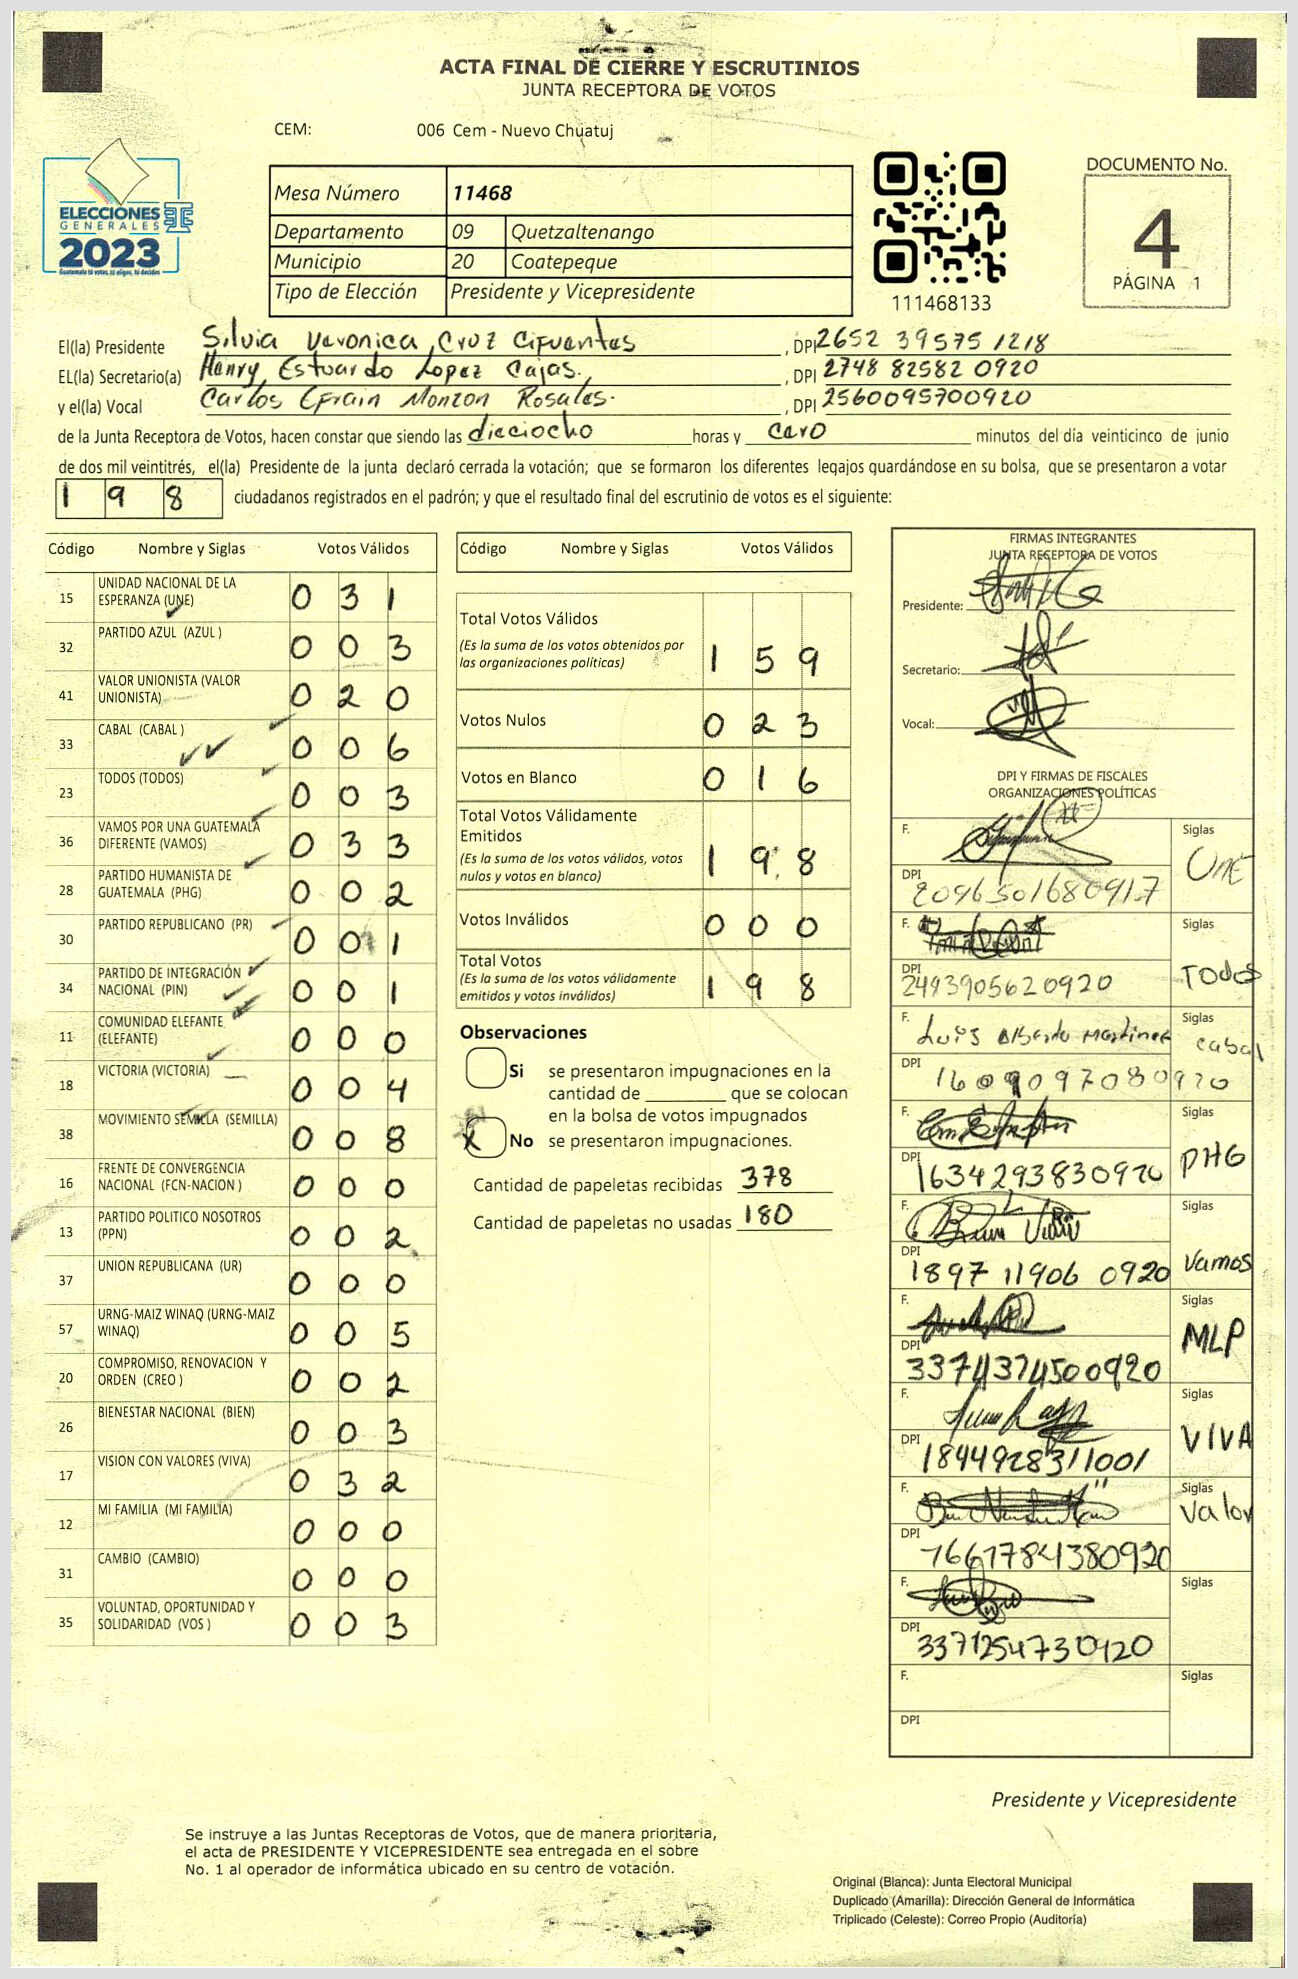 ACTA FINAL DE CIERRE Y ESCRUTINIOS
JUNTA RECEPTORA DE VOTOS
CEM: 006 Cem - Nuevo Chuatuj
ELECCIONES
GENERALES
2023
Guatemala tú votas, tú eliges, tú decides
Mesa Número 11468
Departamento 09 Quetzaltenango
Municipio 20 Coatepeque
Tipo de Elección Presidente y Vicepresidente
111468133
DOCUMENTO No.
4
PÁGINA 1
El(la) Presidente Silvia Veronica Cruz Cifuentes, DPI 2652 39575 1218
EL(la) Secretario(a) Henry Estuardo Lopez Cajas., DPI 2748 82582 0920
y el(la) Vocal Carlos Efrain Monzon Rosales., DPI 2560095700920
de la Junta Receptora de Votos, hacen constar que siendo las dieciocho horas y cero minutos del día veinticinco de junio
de dos mil veintitrés, el(la) Presidente de la junta declaró cerrada la votación; que se formaron los diferentes legajos guardándose en su bolsa, que se presentaron a votar
198 ciudadanos registrados en el padrón; y que el resultado final del escrutinio de votos es el siguiente:
Código Nombre y Siglas Votos Válidos
15 UNIDAD NACIONAL DE LA ESPERANZA (UNE) 031
32 PARTIDO AZUL (AZUL ) 003
41 VALOR UNIONISTA (VALOR UNIONISTA) 020
33 CABAL (CABAL ) 006
23 TODOS (TODOS) 003
36 VAMOS POR UNA GUATEMALA DIFERENTE (VAMOS) 033
28 PARTIDO HUMANISTA DE GUATEMALA (PHG) 002
30 PARTIDO REPUBLICANO (PR) 001
34 PARTIDO DE INTEGRACIÓN NACIONAL (PIN) 001
11 COMUNIDAD ELEFANTE (ELEFANTE) 000
18 VICTORIA (VICTORIA) 004
38 MOVIMIENTO SEMILLA (SEMILLA) 008
16 FRENTE DE CONVERGENCIA NACIONAL (FCN-NACION ) 000
13 PARTIDO POLITICO NOSOTROS (PPN) 002
37 UNION REPUBLICANA (UR) 000
57 URNG-MAIZ WINAQ (URNG-MAIZ WINAQ) 005
20 COMPROMISO, RENOVACION Y ORDEN (CREO ) 002
26 BIENESTAR NACIONAL (BIEN) 003
17 VISION CON VALORES (VIVA) 032
12 MI FAMILIA (MI FAMILIA) 000
31 CAMBIO (CAMBIO) 000
35 VOLUNTAD, OPORTUNIDAD Y SOLIDARIDAD (VOS ) 003
Código Nombre y Siglas Votos Válidos
Total Votos Válidos
(Es la suma de los votos obtenidos por las organizaciones políticas) 159
Votos Nulos 023
Votos en Blanco 016
Total Votos Válidamente Emitidos
(Es la suma de los votos válidos, votos nulos y votos en blanco) 198
Votos Inválidos 000
Total Votos
(Es la suma de los votos válidamente emitidos y votos inválidos) 198
Observaciones
Si se presentaron impugnaciones en la
cantidad de ________ que se colocan
en la bolsa de votos impugnados
X No se presentaron impugnaciones.
Cantidad de papeletas recibidas 378
Cantidad de papeletas no usadas 180
FIRMAS INTEGRANTES
JUNTA RECEPTORA DE VOTOS
Presidente:
Secretario:
Vocal:
DPI Y FIRMAS DE FISCALES
ORGANIZACIONES POLÍTICAS
F. Siglas UNE
DPI 2096501680917
F. Siglas TODOS
DPI 2493905620920
F. Luis Alberto Martinez Siglas Cabal
DPI 1609097080920
F. Siglas PHG
DPI 1634293830920
F. Siglas Vamos
DPI 1897 11906 0920
F. Siglas MLP
DPI 3374374500920
F. Siglas VIVA
DPI 1844928311001
F. Siglas Valor
DPI 1661784380920
F. Siglas
DPI 3371254730920
F. Siglas
DPI
Presidente y Vicepresidente
Se instruye a las Juntas Receptoras de Votos, que de manera prioritaria,
el acta de PRESIDENTE Y VICEPRESIDENTE sea entregada en el sobre
No. 1 al operador de informática ubicado en su centro de votación.
Original (Blanca): Junta Electoral Municipal
Duplicado (Amarilla): Dirección General de Informática
Triplicado (Celeste): Correo Propio (Auditoría)